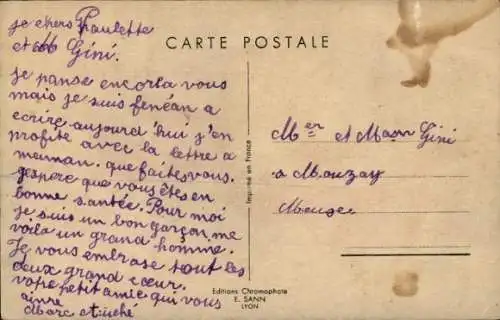 je chers Paulette
et M Gini.
je panse encorla vous
mais je suis fenéan a
ecrire aujourd'hui j'en
profite avec la lettre a
maman. que faites vous.
j'espere que vous êtes en
bonne santée. Pour moi
je suis un bon garçon me
voila un grand homme.
Je vous embrase tout les
deux grand cœur.
votre petit amie qui vous
aime
Marc
CARTE POSTALE
Mer et Mme Gini
a Mouzay
Meuse
Imprimé en France
Editions Chromophoto
E. SANN
LYON